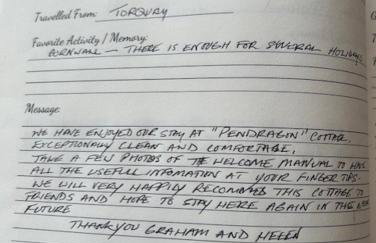 Travelled From: TORQUAY
Favorite Activity / Memory:
CORNWALL — THERE IS ENOUGH FOR SEVERAL HOLIDAYS
Message:
WE HAVE ENJOYED OUR STAY AT "PENDRAGON" COTTAGE.
EXCEPTIONALLY CLEAN AND COMFORTABLE.
TAKE A FEW PHOTOS OF THE WELCOME MANUAL TO HAVE
ALL THE USEFULL INFOMATION AT YOUR FINGER TIPS.
WE WILL VERY HAPPILY RECOMMEND THIS COTTAGE TO
FRIENDS AND HOPE TO STAY HERE AGAIN IN THE
FUTURE
THANKYOU GRAHAM AND HELEN